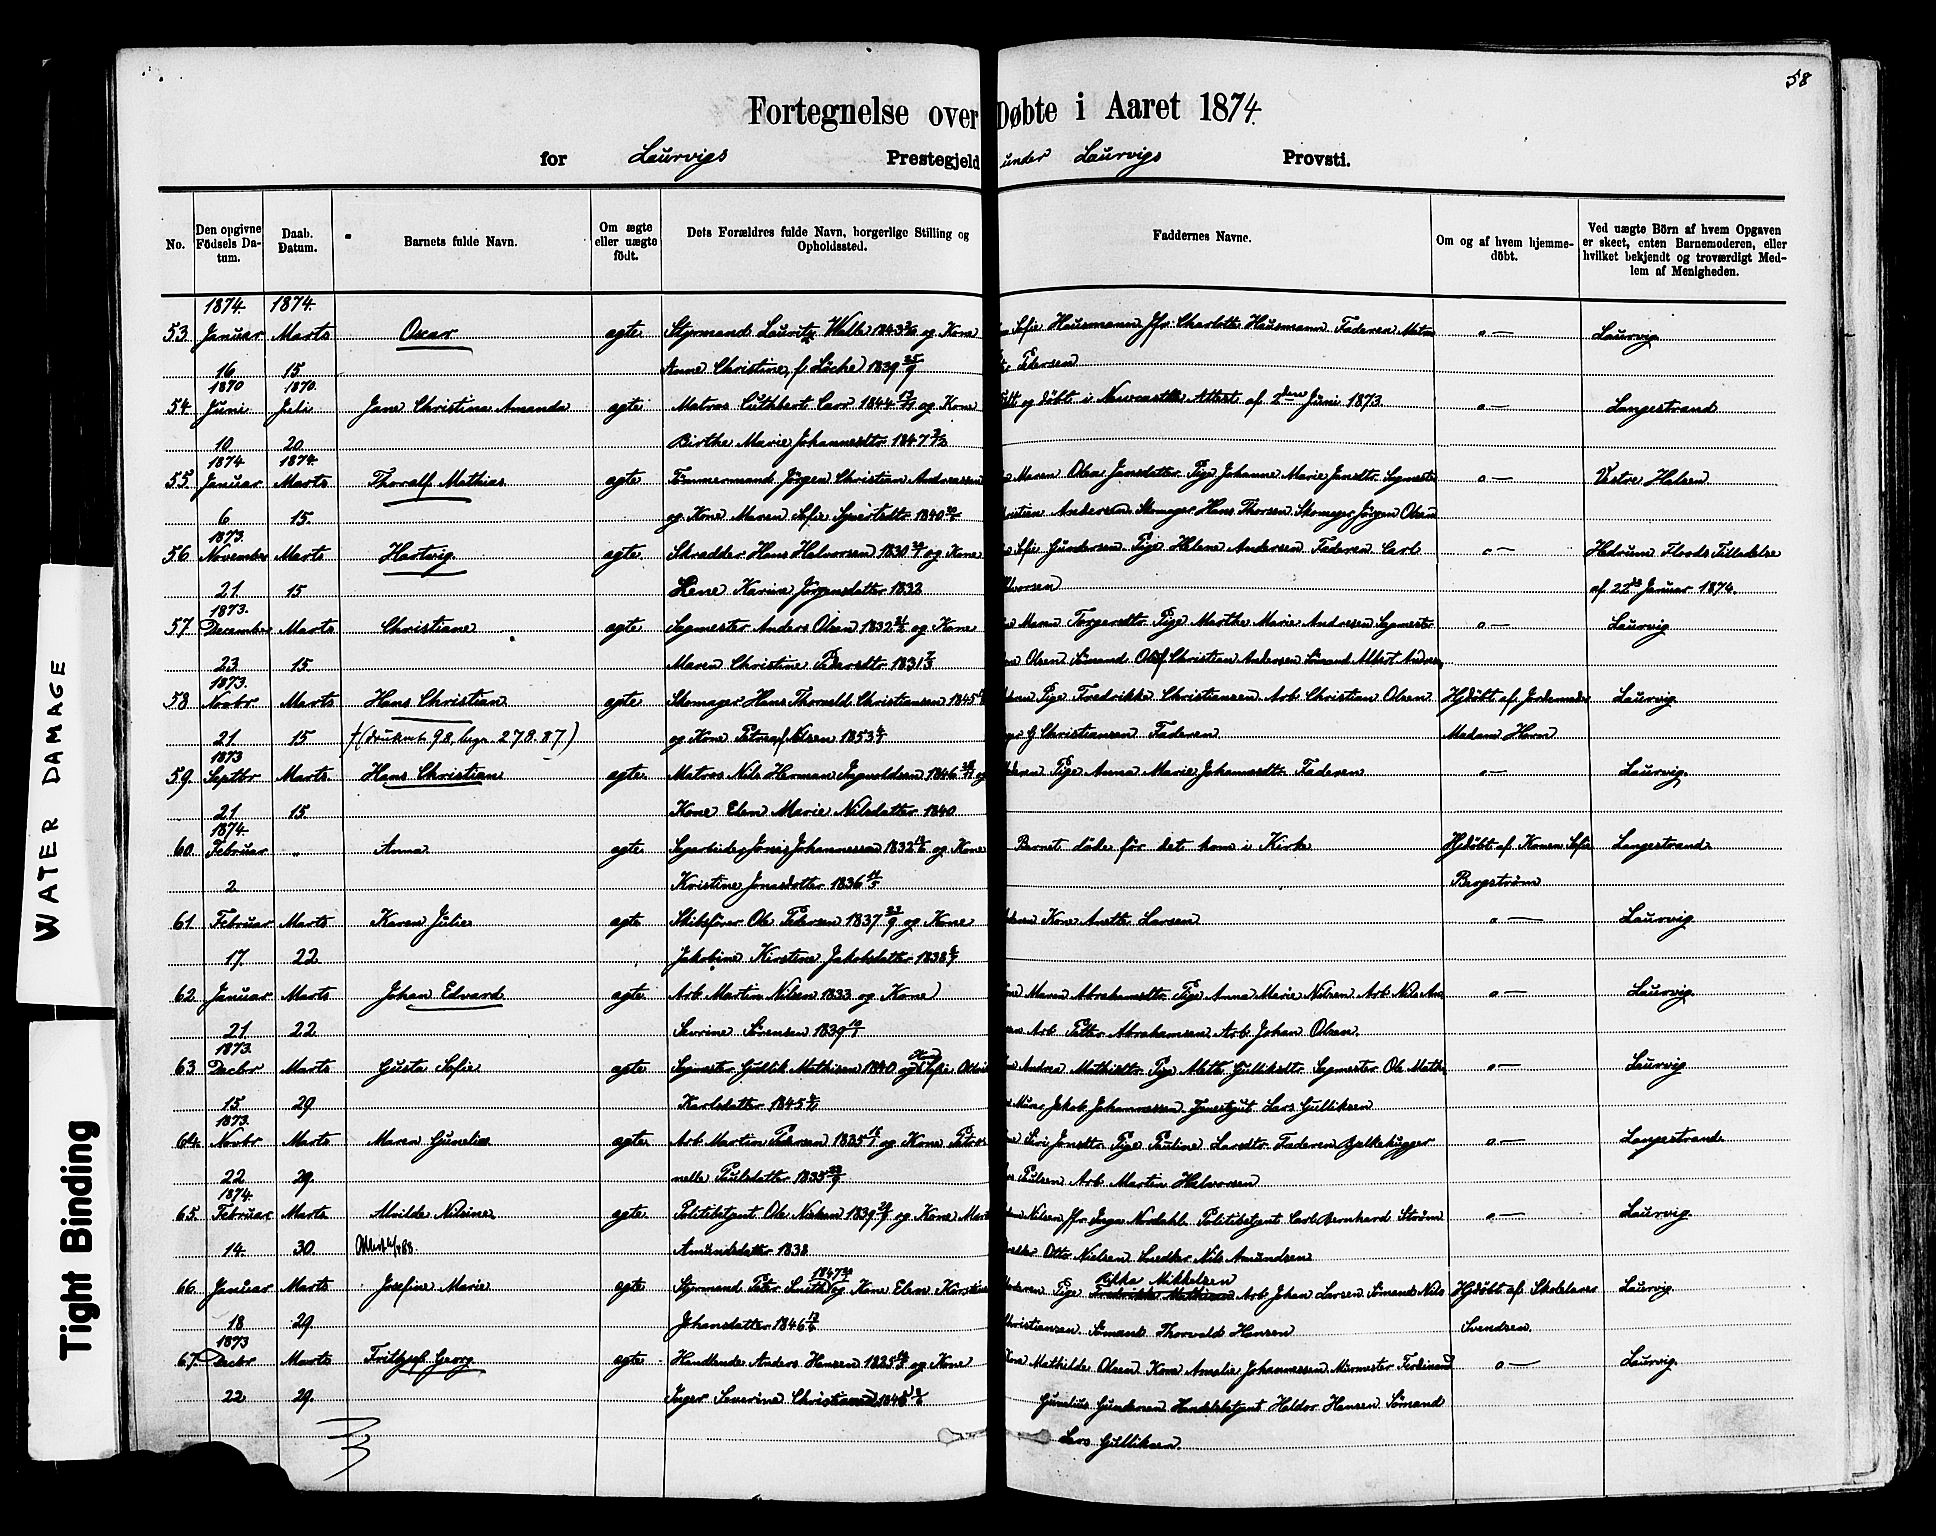 58
Fortegnelse over Døbte i Aaret 1874.
for Laurvigs Prestegjeld under Laurvigs Provsti.
No.
Den opgivne Födsels Datum.
Daab. Datum.
Barnets fulde Navn.
Om ægte eller uægte födt.
Dets Forældres fulde Navn, borgerlige Stilling og Opholdssted.
Faddernes Navne.
Om og af hvem hjemmedöbt.
Ved uægte Börn af hvem Opgaven er skeet, enten Barnemoderen, eller hvilket bekjendt og troværdigt Medlem af Menigheden.
1874. 1874.
53 Januar Marts Oscar ægte Styrmand Lauritz 1843 og Kone Sofie Hausmann Jfr. Charlotte Hausmann Faderen o— Laurvig
16 15 Anne Christine f. Löche 1839 25/9 Petersen
1870 1870.
54 Juni Juli Jane Christina Amanda ægte Matros Cuthbert Carr 1844 og Kone og döbt i Newcastle Attest af 2den Juni 1873. o— Langestrand
10 20 Birthe Marie Johannesdtr 1847
1874 1874.
55 Januar Marts Thoralf Mathias ægte Tömmermand Jörgen Christian Andreassen Maren Olea Jansdatter Pige Johanne Marie Jansdtr. Sagmester o— Vestre Halsen
6 15. og Kone Maren Sofie 1840 Andersen Skomager Hans Thorsen Skomager Jörgen Olsen
1873.
56 November Marts Hartvig ægte Skrædder Hans Halvorsen 1830 og Kone Sofie Gundersen Pige Helene Andersen Faderen Carl o— Hedrum Flods Tilladelse
21 15 Lene Karine Jörgensdatter 1832 af 22de Januar 1874.
1873.
57 December Marts Christiane ægte Sagmester Anders Olsen 1832 og Kone Maren Torgersdtr Pige Marthe Marie Andresen Sagmester o— Laurvig
23 15 Maren Christine Pedersdtr 1831 Olsen Sömand Olaf Christian Andersen Sömand Albert
1873.
58 Novbr Marts Hans Christian ægte Skomager Hans Thorvald Christiansen 1845 Pige Fredrikke Christiansen Arb. Christian Olsen Hjdöbt af Jordemoder Laurvig
21 15 og Kone Petrea f. Nilsen 1853 G Christiansen Faderen Madam Horn
1873
59. Septbr Marts Hans Christian ægte Matros Nils Herman 1846 og Pige Anna Marie Johannesdtr. Faderen o— Laurvig.
21 15 Kone Elen Marie Nilsdatter 1840
1874.
60 Februar Anna ægte Sagarbeider Johannessen 1832 og Kone Barnet döde för det kom i Kirke Hjdöbt af Konen Sofie Langestrand
2 Kristine Jonasdatter 1836 Bergström
61 Februar Marts Karen Julie ægte Skibsförer Ole Petersen 1837 og Kone Kone Anette Larsen o— Laurvig
17. 22 Jakobine Kirstine Jakobsdatter 1838
62 Januar Marts Johan Edvard ægte Arb. Martin Nilsen 1833 og Kone Maren Abrahamsdtr Pige Anna Marie Nilsen Arb Nils o— Laurvig.
21 22 Severine Sörensen 1839 Arb. Petter Abrahamsen Arb. Johan Olsen.
1873.
63 Decbr Marts Gusta Sofie ægte Sagmester Gullik Mathisen 1840 og Kone Sofie Andrea Mathisdtr Pige Gulliksdtr Sagmester Ole o— Laurvig
15 29 Karlsdatter 1845 Jakob Johannessen Lars Gulliksen
1873.
64. Novbr Marts Maren Gunelie ægte Arb Martin Petersen 1835 og Kone Siri Jonsdtr Pige Pauline Larsdtr Faderen Bjelkehugger o— Langestrand
22 29. nelle Paulsdatter 1835 Arb. Martin Halvorsen
1874.
65. Februar Marts Nilsine ægte Politibetjent Ole Nielsen 1839 og Kone Nilsen Jfr Inga Nordahl Politibetjent Carl Bernhard Ström o— Laurvig
14. 30. Amundsdatter 1838 Otto Nielsen Snedker Nils Amundsen
66 Januar Marts Josefine Marie ægte Styrmand Peter Smith 1847 og Kone Elen Kirstine Pige Mikkelsen Arb Johan Larsen Sömand Nils Hjdöbt af Skolelærer Laurvig
18 29 Johansdatter 1846 Christiansen Sömand Thorvald Hansen Svendsen.
1873
67. Decbr Marts Fritzjof Georg ægte Handlende Anders Hansen 1825 og Kone Kone Mathilde Olsen Kone Amalie Johannessen Murmester Ferdinand o— Laurvig.
22 29. Inger Severine 1848 Gunelius Gundersen Handelsbetjent Haldor Hansen Sömand
Lars Gulliksen.
WATER DAMAGE
Tight Binding